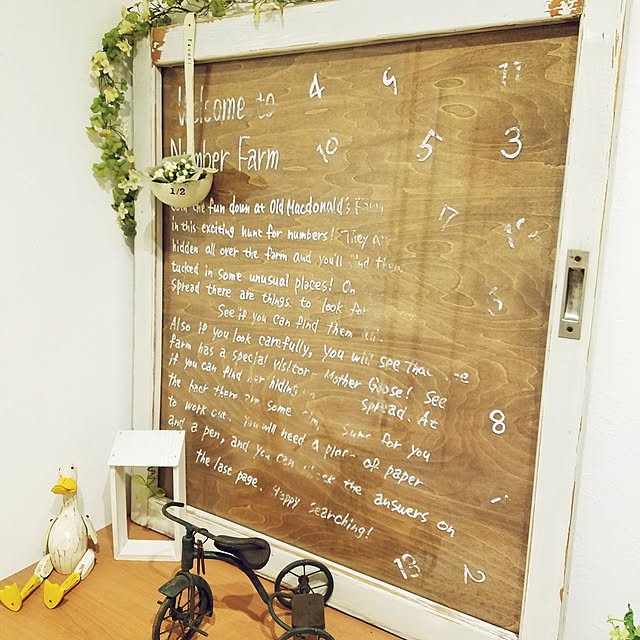 Welcome to
4 9 11
Number Farm
10 5 3
1/2
the fun down at Old Macdonald's
7
in this exciting hunt for numbers! They
hidden all over the farm and you'll find them
tucked in some unusual places! On
Spread there are things to look for
See if you can find them
Also if you look carefully, you will see that
farm has a special visitor Mother Goose! See
if you can find her hiding spread. At
the back there are some sums for you
8
to work out. You will need a piece of paper
and a pen, and you can check the answers on
the last page. Happy searching!
13 2